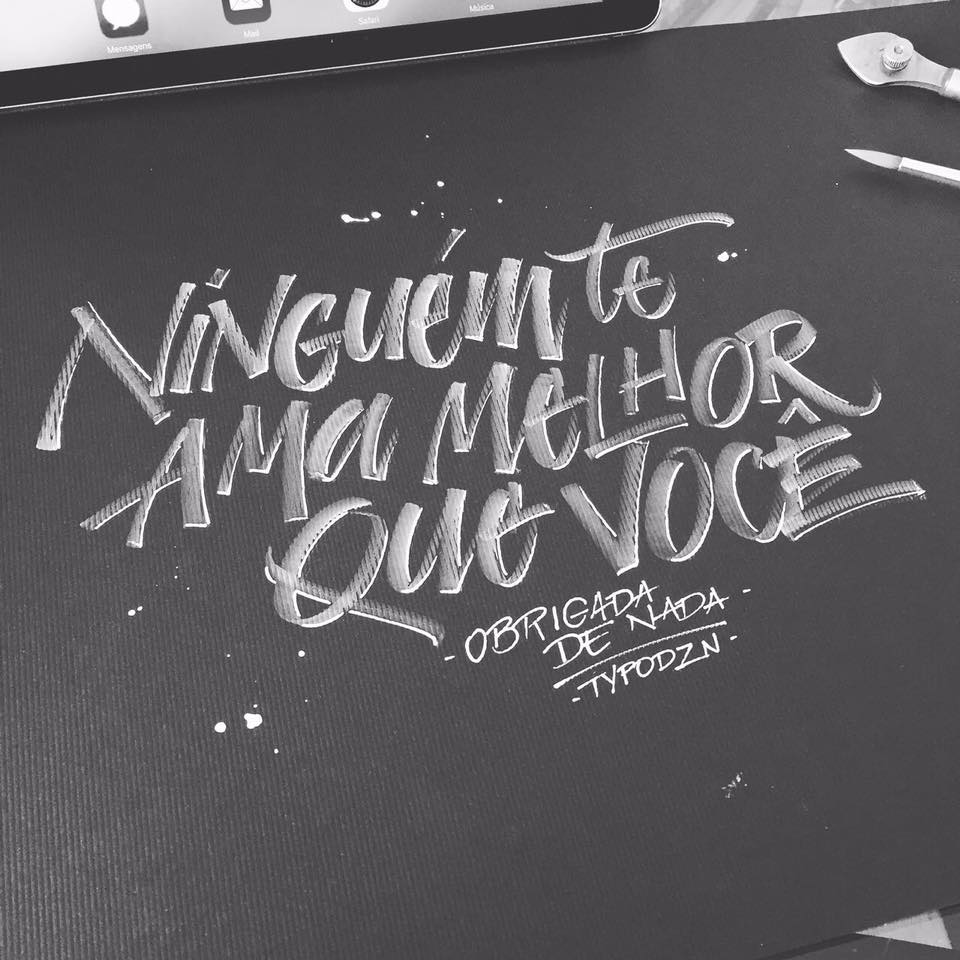 Mensagens Mail Safari Música
NiNGUÉM te
AMA MELHOR
QUE VOCÊ
- OBRIGADA -
DE NADA
- TYPODZN -